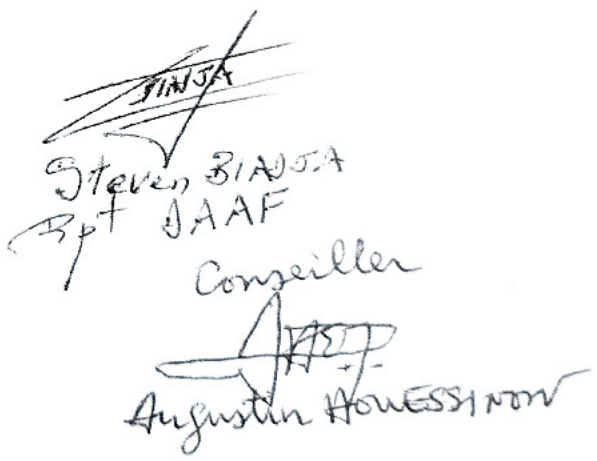 BINJA
Steven BIANJA
Rpt DAAF
Conseiller
Augustin HOUESSINON